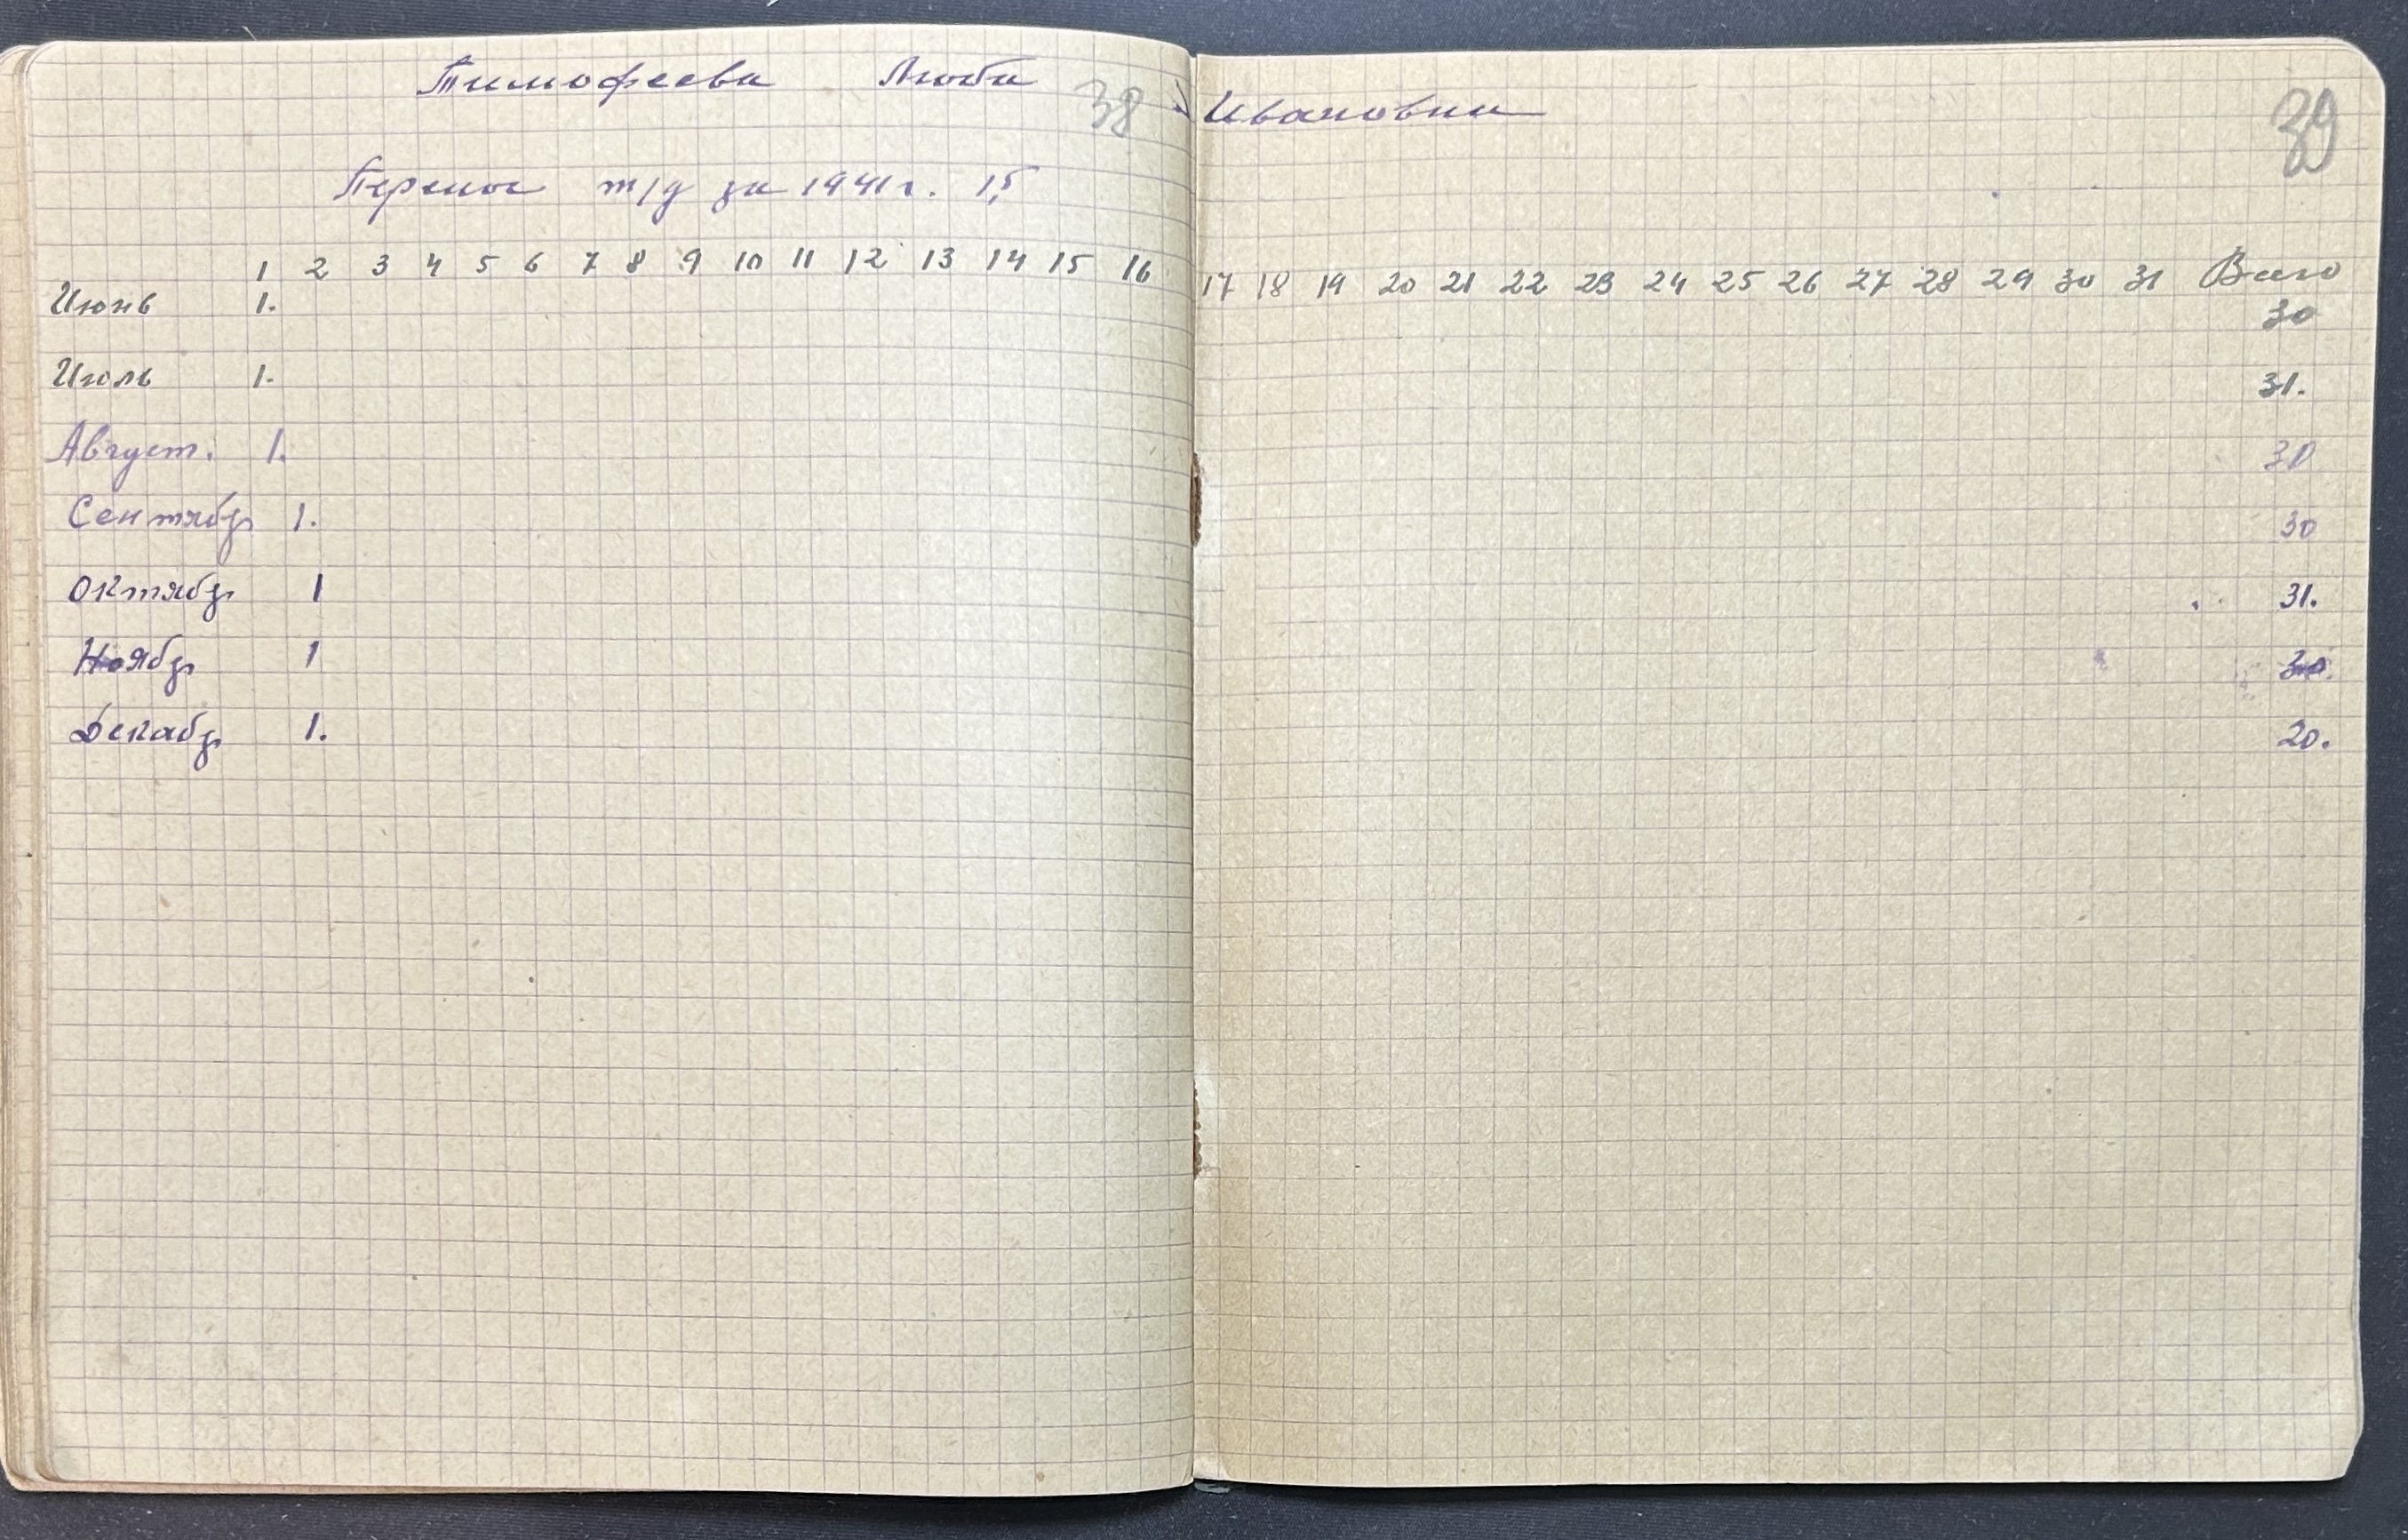 Тимофеева Люба Ивановна
38 39
Перенос т/д за 1941 г. 15
1 2 3 4 5 6 7 8 9 10 11 12 13 14 15 16 17 18 19 20 21 22 23 24 25 26 27 28 29 30 31 Всего
Июнь 1. 30
Июль 1. 31.
Август. 1. 30
Сентябр 1. 30
Октябр 1 31.
Ноябр 1 30.
Декабр 1. 20.